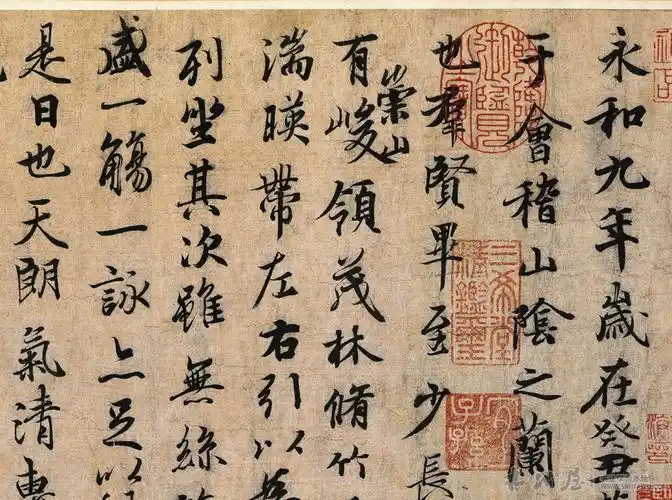 永和九年歲在癸丑
于會稽山陰之蘭
也羣賢畢至少長
有崇山峻領茂林脩竹
湍暎帶左右引以為
列坐其次雖無絲
盛一觴一詠亦足以
是日也天朗氣清惠
三希堂精鑑璽
宜子孫